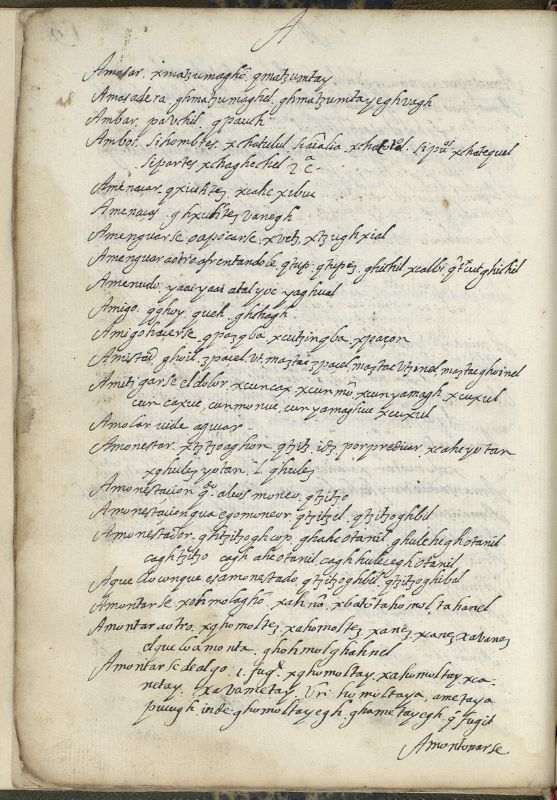 A
Amasar. xmatzumaghô. qmatzumtay
Amasadera. ghmatzumaghel. ghmatzumtayeghvagh
Ambar. pauchil. qpauch
Ambos. si hombres. xchatulul. si aîalia. xchatcal. si pûs xchatequel
si partes xchaghechel
Amenaçar. qxiuhtez. xcahc xibic
Amenaças. ghxiuhtez vanegh
Amenguarse o apocarse. xvetz, xtzughxial
Amenguar a otro afrentandole. qtup. qtupez. ghichil xcalbi
Amenudo. yaai yaai atal yoc yaghual
Amigo. qghoy. queh. ghthagh
Amigo hacerse. qpazqba. xcutzinqba. xpacon
Amistad. ghoil.
Amitigarse el dolor. xcuncax xcunmô. xcunyamagh. xcuxul
cun caxue, cunmonue, cunyamaghue xcuxul
Amolar vide aguar.
Amonestar. xtzitzoaghon qtzitz. por predicar xcaheyotan
xghulez yotan. l. ghulez
Amonestacion q̃ a los moneo. qtzitzo
Amonestacion qua ego moneor. qtzitzel. qtzitzoghbil
Amonestador. ghtzitzoghcop. ghahc otanil ghulehigh otanil
caghtzitzo cagh ahc otanil. cagh huleegh otanil
Aquello con que es amonestado. qtzitzoghbil qtzitzoghibal
Amontarse. xohimolaghô. xahnâ. xbatô tahomol. tahanel
Amontar a otro. xghomoltez. xahomoltez. xanez xanez xavanez
el que lo amonta. ghohmol ghahnel
Amontarse de algo. l. fugˡ. xghomoltay. xahomoltay. xca-
netay. l. xavametay. Uñ homoltaya, ametaya
puugh inde. ghomoltayegh. ghametayegh. q̃ fugit
Amontonarse